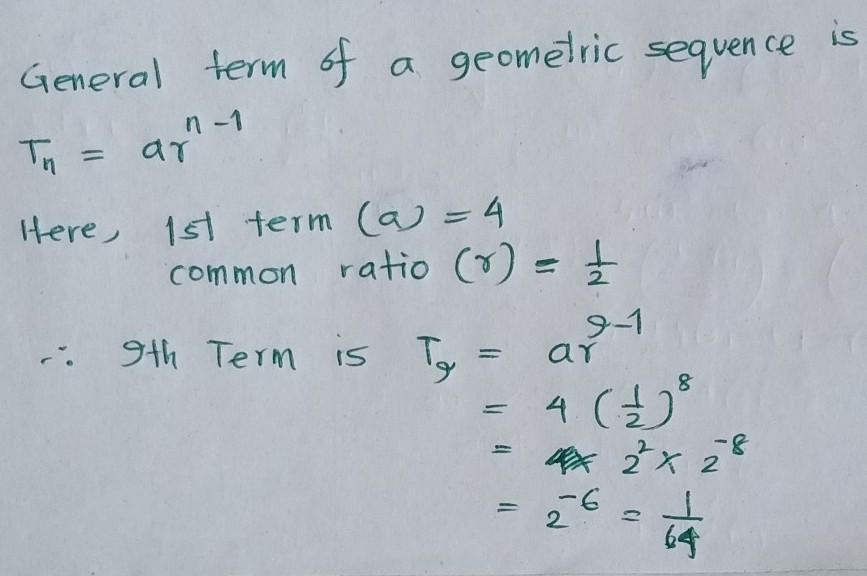 General term of a geometric sequence is
Tₙ = arⁿ⁻¹
Here, 1st term (a) = 4
common ratio (r) = 1/2
∴ 9th Term is T₉ = ar⁹⁻¹
= 4 (1/2)⁸
= 2² × 2⁻⁸
= 2⁻⁶ = 1/64